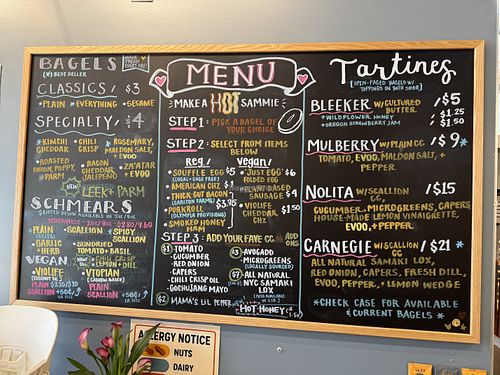 BAGELS
MADE FRESH EVERY DAY!
(*) BEST SELLER
CLASSICS: $3
*PLAIN *EVERYTHING *SESAME
SPECIALTY: $4
*KIMCHI CHEDDAR
*CHILI CRISP
*ROSEMARY, MALDON SALT, + EVOO
*ROASTED ONION, POPPY, + PARM
*BACON CHEDDAR JALAPEÑO
*ZA'ATAR + EVOO
NEW
LEEK + PARM
SCHMEARS
*PLAIN
*SCALLION
*SPICY SCALLION
*GARLIC HERB
*SUNDRIED TOMATO + BASIL
VEGAN
NEW
*CHILI CRISP
*LEMON + DILL
VIOLIFE
(COCONUT OIL)
*VTOPIAN
(CASHEW BASED)
PLAIN
SCALLION
PLAIN
SCALLION
MENU
MAKE A HOT SAMMIE
STEP 1: PICK A BAGEL OF YOUR CHOICE
STEP 2: SELECT FROM ITEMS BELOW
Reg/
Vegan/
*SOUFFLE EGG $5
(LOCAL + CAGE FREE)
*AMERICAN CHZ $1
*THICK CUT BACON $4
(CARLTON FARMS)
*PORK ROLL
(OLYMPIA PROVISIONS)
*SMOKED HONEY HAM
*"JUST EGG" $6
FOLDED EGG
*PLANT BASED SAUSAGE
*VIOLIFE CHEDDAR CHZ
STEP 3: ADD YOUR FAVE CC ADD ONS
$1 TOMATO
CUCUMBER
RED ONION
CAPERS
CHILI CRISP OIL
GOCHUJANG MAYO
$2 MAMA'S LIL PEPPERS
$3 AVOCADO
MICROGREENS
(LOCALLY SOURCED)
$7 ALL NATURAL
NYC SAMAKI
LOX
HOT HONEY
Tartines
[OPEN-FACED BAGELS W/ TOPPINGS ON BOTH SIDES]
BLEEKER W/CULTURED BUTTER /$5
+WILDFLOWER HONEY $1.25
+OREGON STRAWBERRY JAM $1.50
MULBERRY W/PLAIN CC /$9*
TOMATO, EVOO, MALDON SALT, + PEPPER
NOLITA W/SCALLION CC /$15
CUCUMBER, MICROGREENS, CAPERS
HOUSE-MADE LEMON VINAIGRETTE,
EVOO, + PEPPER
CARNEGIE W/SCALLION CC /$21*
ALL NATURAL SAMAKI LOX,
RED ONION, CAPERS, FRESH DILL,
EVOO, PEPPER, + LEMON WEDGE
*CHECK CASE FOR AVAILABLE
& CURRENT BAGELS*
ALLERGY NOTICE
NUTS
DAIRY